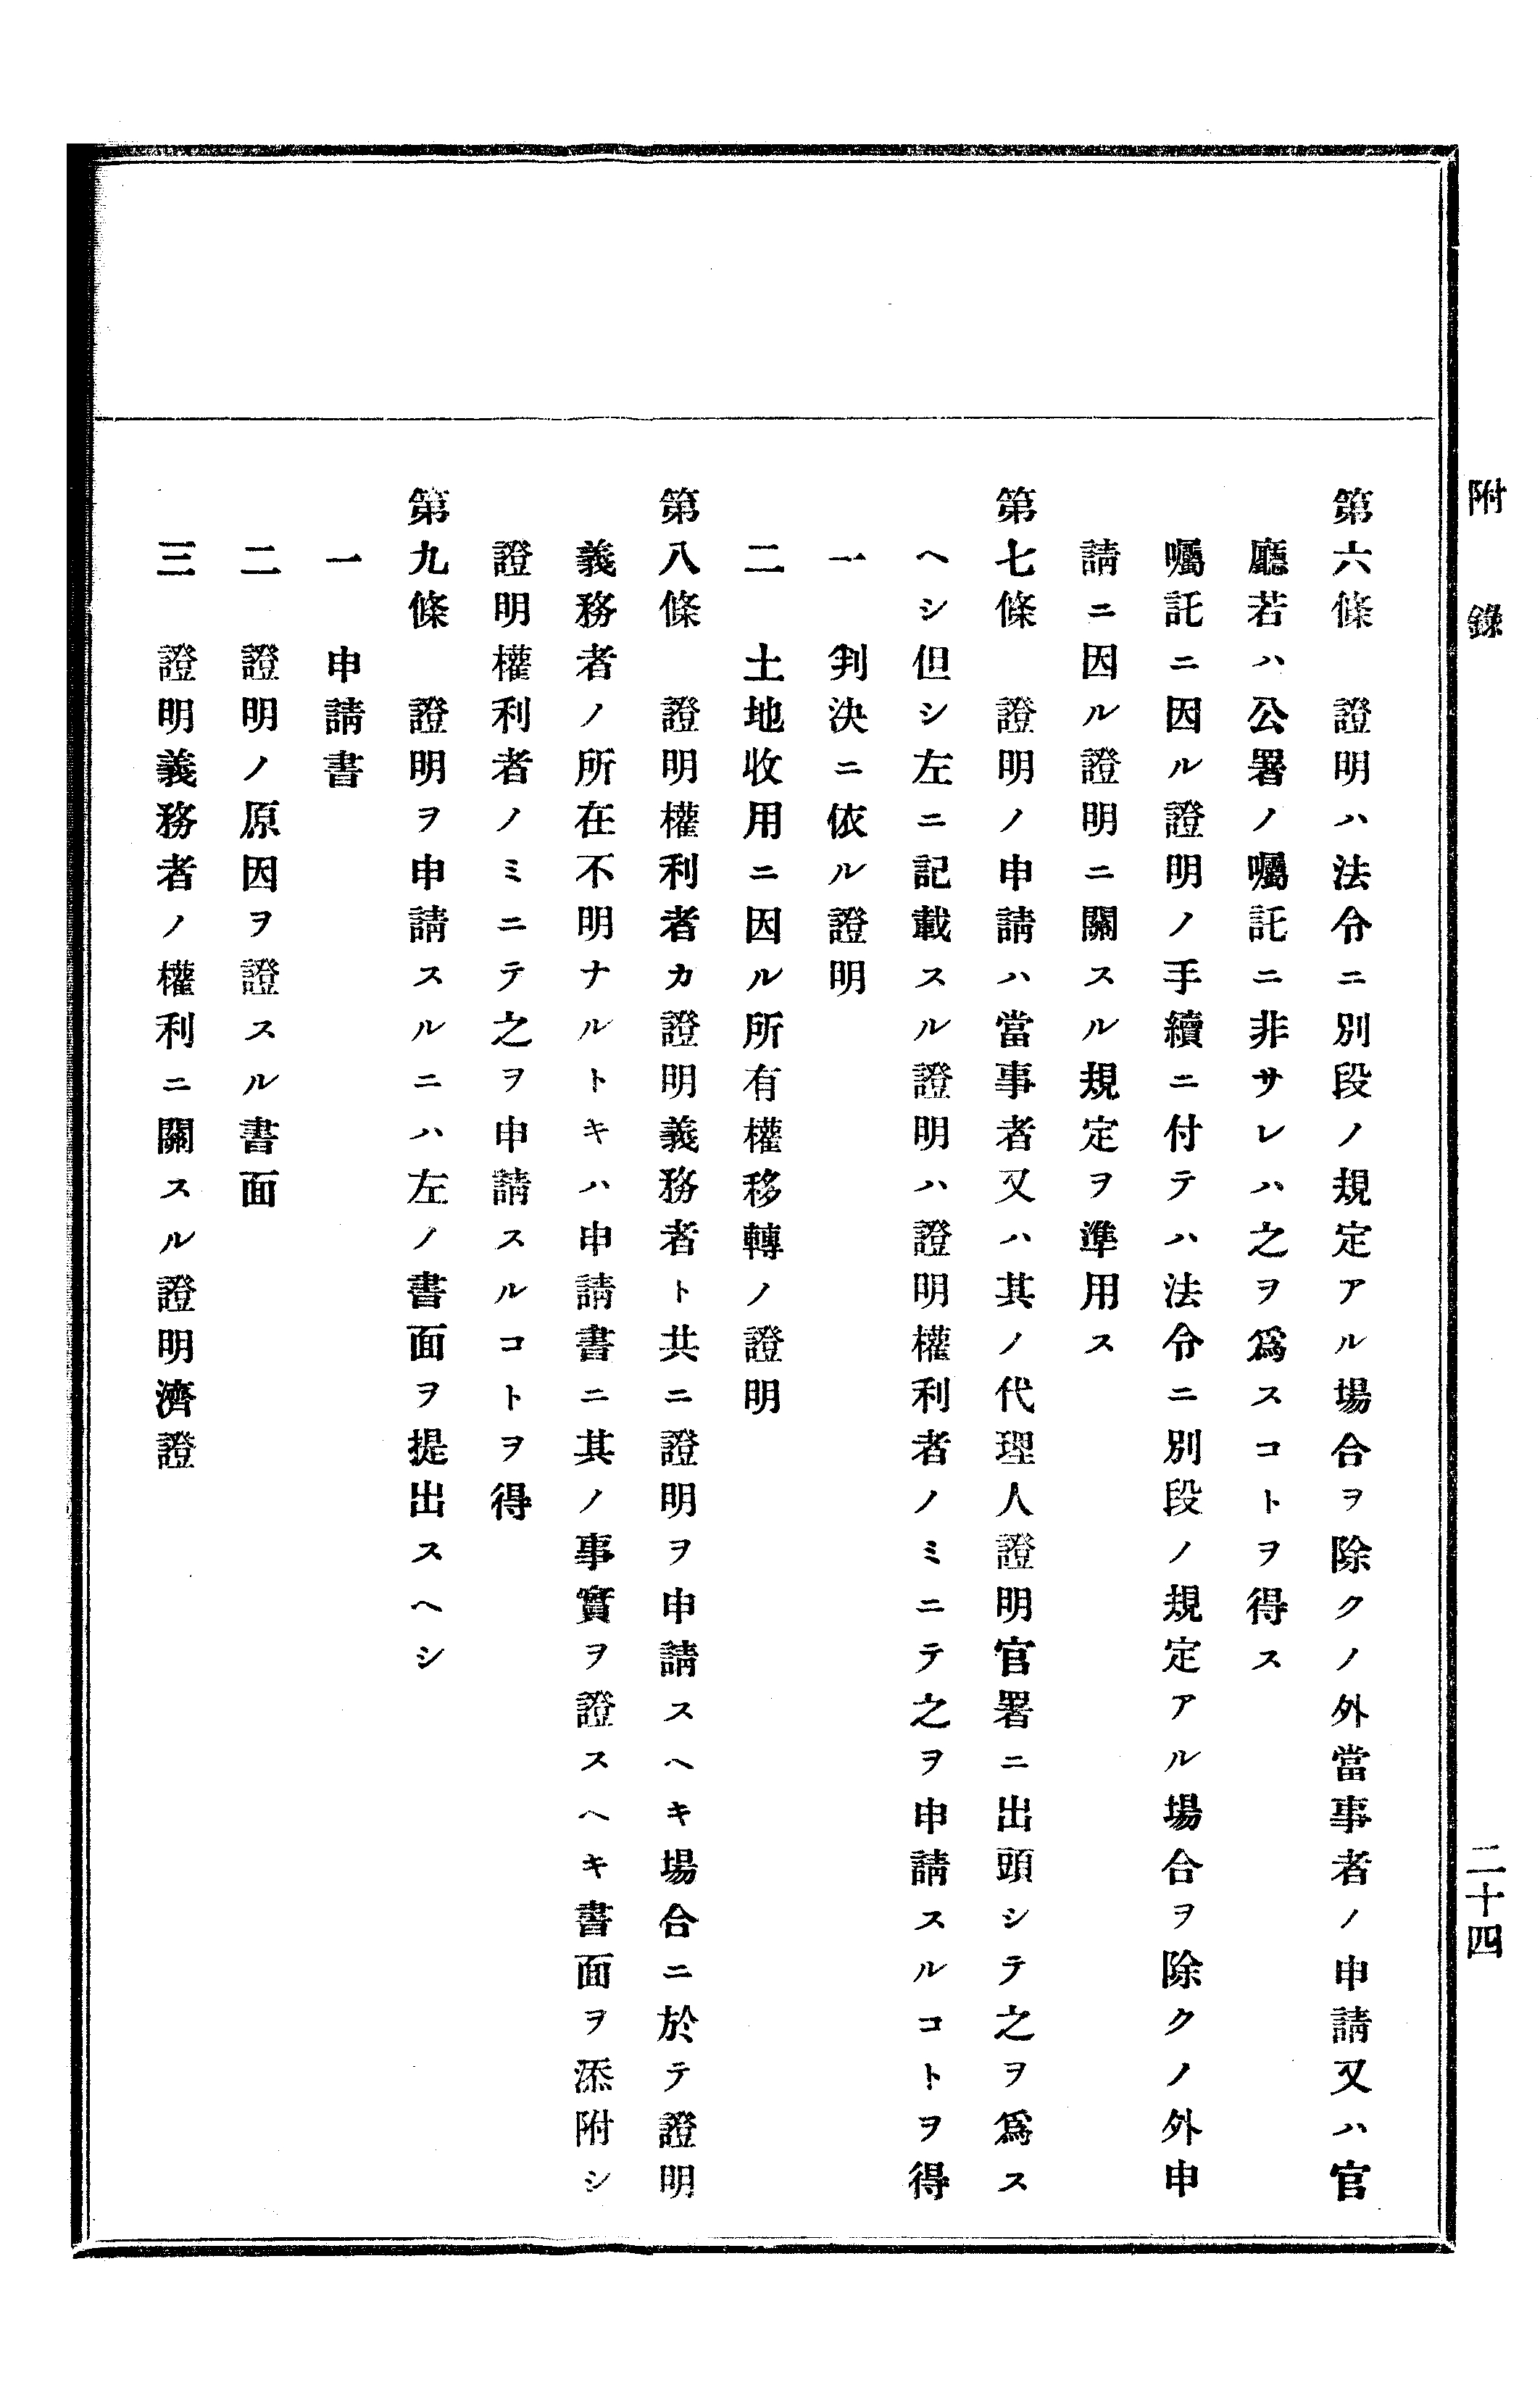 附錄
二十四
第六條　證明ハ法令ニ別段ノ規定アル場合ヲ除クノ外當事者ノ申請又ハ官
廳若ハ公署ノ囑託ニ非サレハ之ヲ爲スコトヲ得ス
囑託ニ因ル證明ノ手續ニ付テハ法令ニ別段ノ規定アル場合ヲ除クノ外申
請ニ因ル證明ニ關スル規定ヲ準用ス
第七條　證明ノ申請ハ當事者又ハ其ノ代理人證明官署ニ出頭シテ之ヲ爲ス
ヘシ但シ左ニ記載スル證明ハ證明權利者ノミニテ之ヲ申請スルコトヲ得
一　判決ニ依ル證明
二　土地收用ニ因ル所有權移轉ノ證明
第八條　證明權利者カ證明義務者ト共ニ證明ヲ申請スヘキ場合ニ於テ證明
義務者ノ所在不明ナルトキハ申請書ニ其ノ事實ヲ證スヘキ書面ヲ添附シ
證明權利者ノミニテ之ヲ申請スルコトヲ得
第九條　證明ヲ申請スルニハ左ノ書面ヲ提出スヘシ
一　申請書
二　證明ノ原因ヲ證スル書面
三　證明義務者ノ權利ニ關スル證明濟證